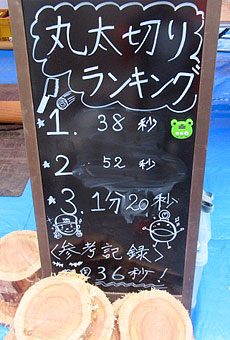 丸太切り
ランキング
1. 38秒
2 52秒
3. 1分20秒
〈参考記録〉
36秒!